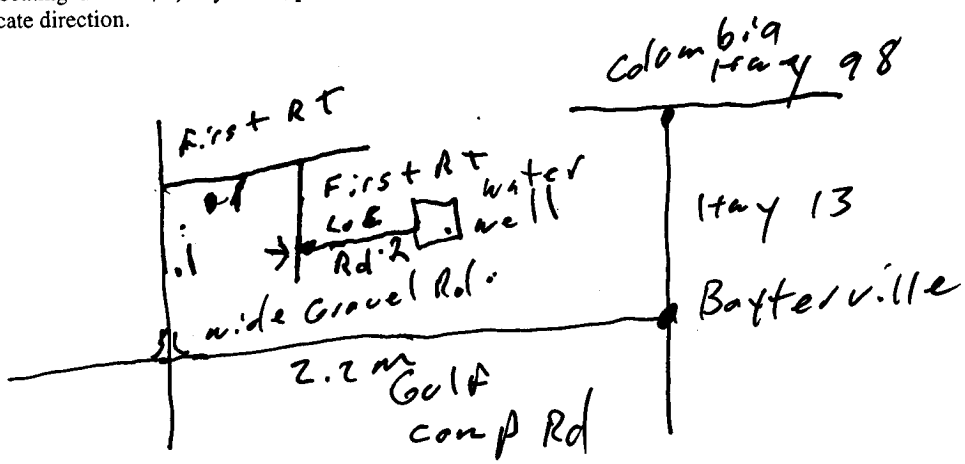 cate direction.
Columbia
Hwy 98
First RT
First RT
water
well
Rd.
Hwy 13
wide Gravel Rd.
Baxterville
2.2 m
Gulf
camp Rd